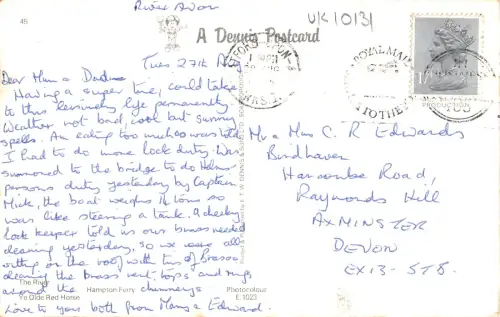 45
River Avon
UK10131
A Dennis Postcard
Tues 27th Aug.
Dear Mum & Dad
Having a super time, could take
to this leisurely life permanently
Weather not bad, cool but sunny
spells. Am eating too much so was told
I had to do more lock duty. Was
summoned to the bridge to do Helms-
persons duty yesterday by Captain
Mick, the boat weighs 14 tons so
was like steering a tank. A cheeky
lock keeper told us our brass needed
cleaning yesterday, so we were all
sitting on the roof with tins of Brasso
cleaning the brass vent tops and rings
around the chimneys
Love to you both from Mary & Edward.
The River
Ye Olde Red Horse
Hampton Ferry
Photocolour
E.1023
ROYAL MAIL
Mr & Mrs C. R Edwards
Birdhaven
Harcombe Road,
Raymonds Hill
AXMINSTER
DEVON
EX13-5TB.